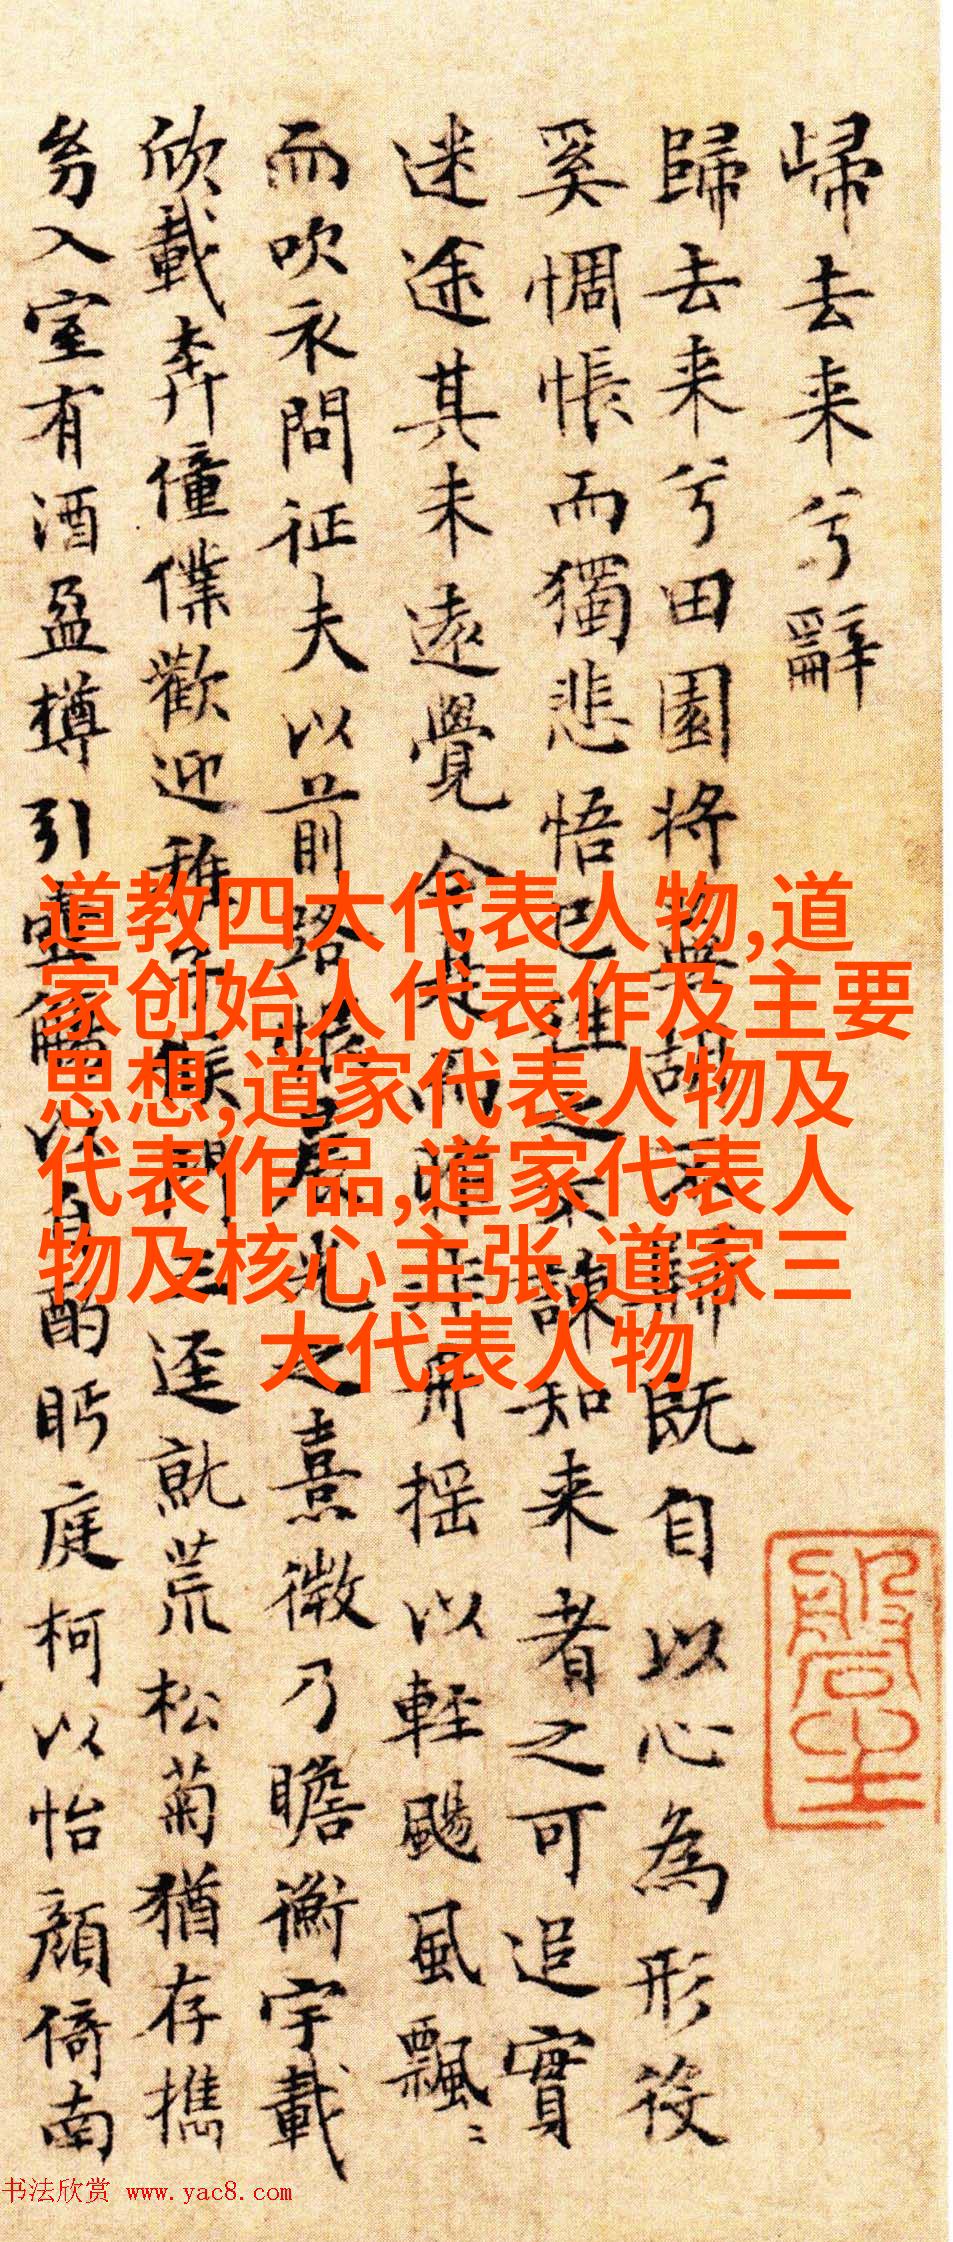 歸去来兮辭
歸去来兮田園将蕪胡不歸既自以心為形役
奚惆悵而獨悲悟已往之不諫知来者之可追實
迷途其未遠覺今是而昨非舟摇以輕颺風飄〻
而吹衣問征夫以前路恨晨光之熹微乃瞻衡宇載
欣載奔僮僕歡迎稚子候門三逕就荒松菊猶存攜
幼入室有酒盈樽引壺觴以自酌眄庭柯以怡顔倚南
道教四大代表人物,道
家创始人代表作及主要
思想,道家代表人物及
代表作品,道家代表人
物及核心主张,道家三
大代表人物
书法欣赏 www.yac8.com